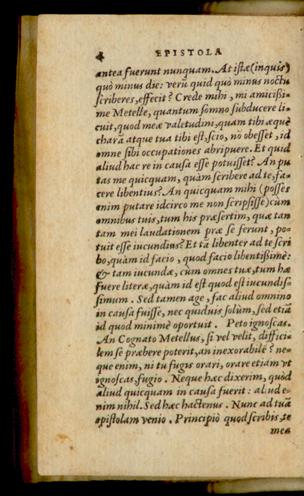 4 EPISTOLA
antea fuerunt nunquam. At istæ (inquis)
quò minus die: verù quid quò minus noctu
scriberes, effecit? Crede mihi, mi amicissi-
me Metelle, quantum somno subducere li-
cuit, quod meæ valetudini, quam tibi æquè
charā atque tua tibi est, scio, nō obesset, id
omne sibi occupationes abripuere. Et quid
aliud hac re in causa esse potuisset? An pu
tas me quicquam, quàm scribere ad te, fa-
cere libentius? An quicquam mihi (posses
enim putare idcirco me non scripsisse) cùm
omnibus tuis, tum his præsertim, quæ tan
tam mei laudationem præ se ferunt, po-
tuit esse iucundius? Et tā libenter ad te scri
bo, quàm id facio, quod facio libentißimè:
& tam iucundæ, cùm omnes tuæ, tum hæ
fuere literæ, quàm id est quod est iucundis-
simum. Sed tamen age, fac aliud omnino
in causa fuisse, nec quiduis solùm, sed etiā
id quod minimè oportuit. Peto ignoscas.
An Cognato Metellus, si vel velit, diffici-
lem se præbere poterit, an inexorabilē? ne-
que enim, ni tu fugis orari, orare etiam vt
ignoscas, fugio. Neque hæc dixerim, quòd
aliud quicquam in causa fuerit: aliud e-
nim nihil. Sed hæc hactenus. Nunc ad tuā
epistolam venio. Principiò quod scribis, te
mea